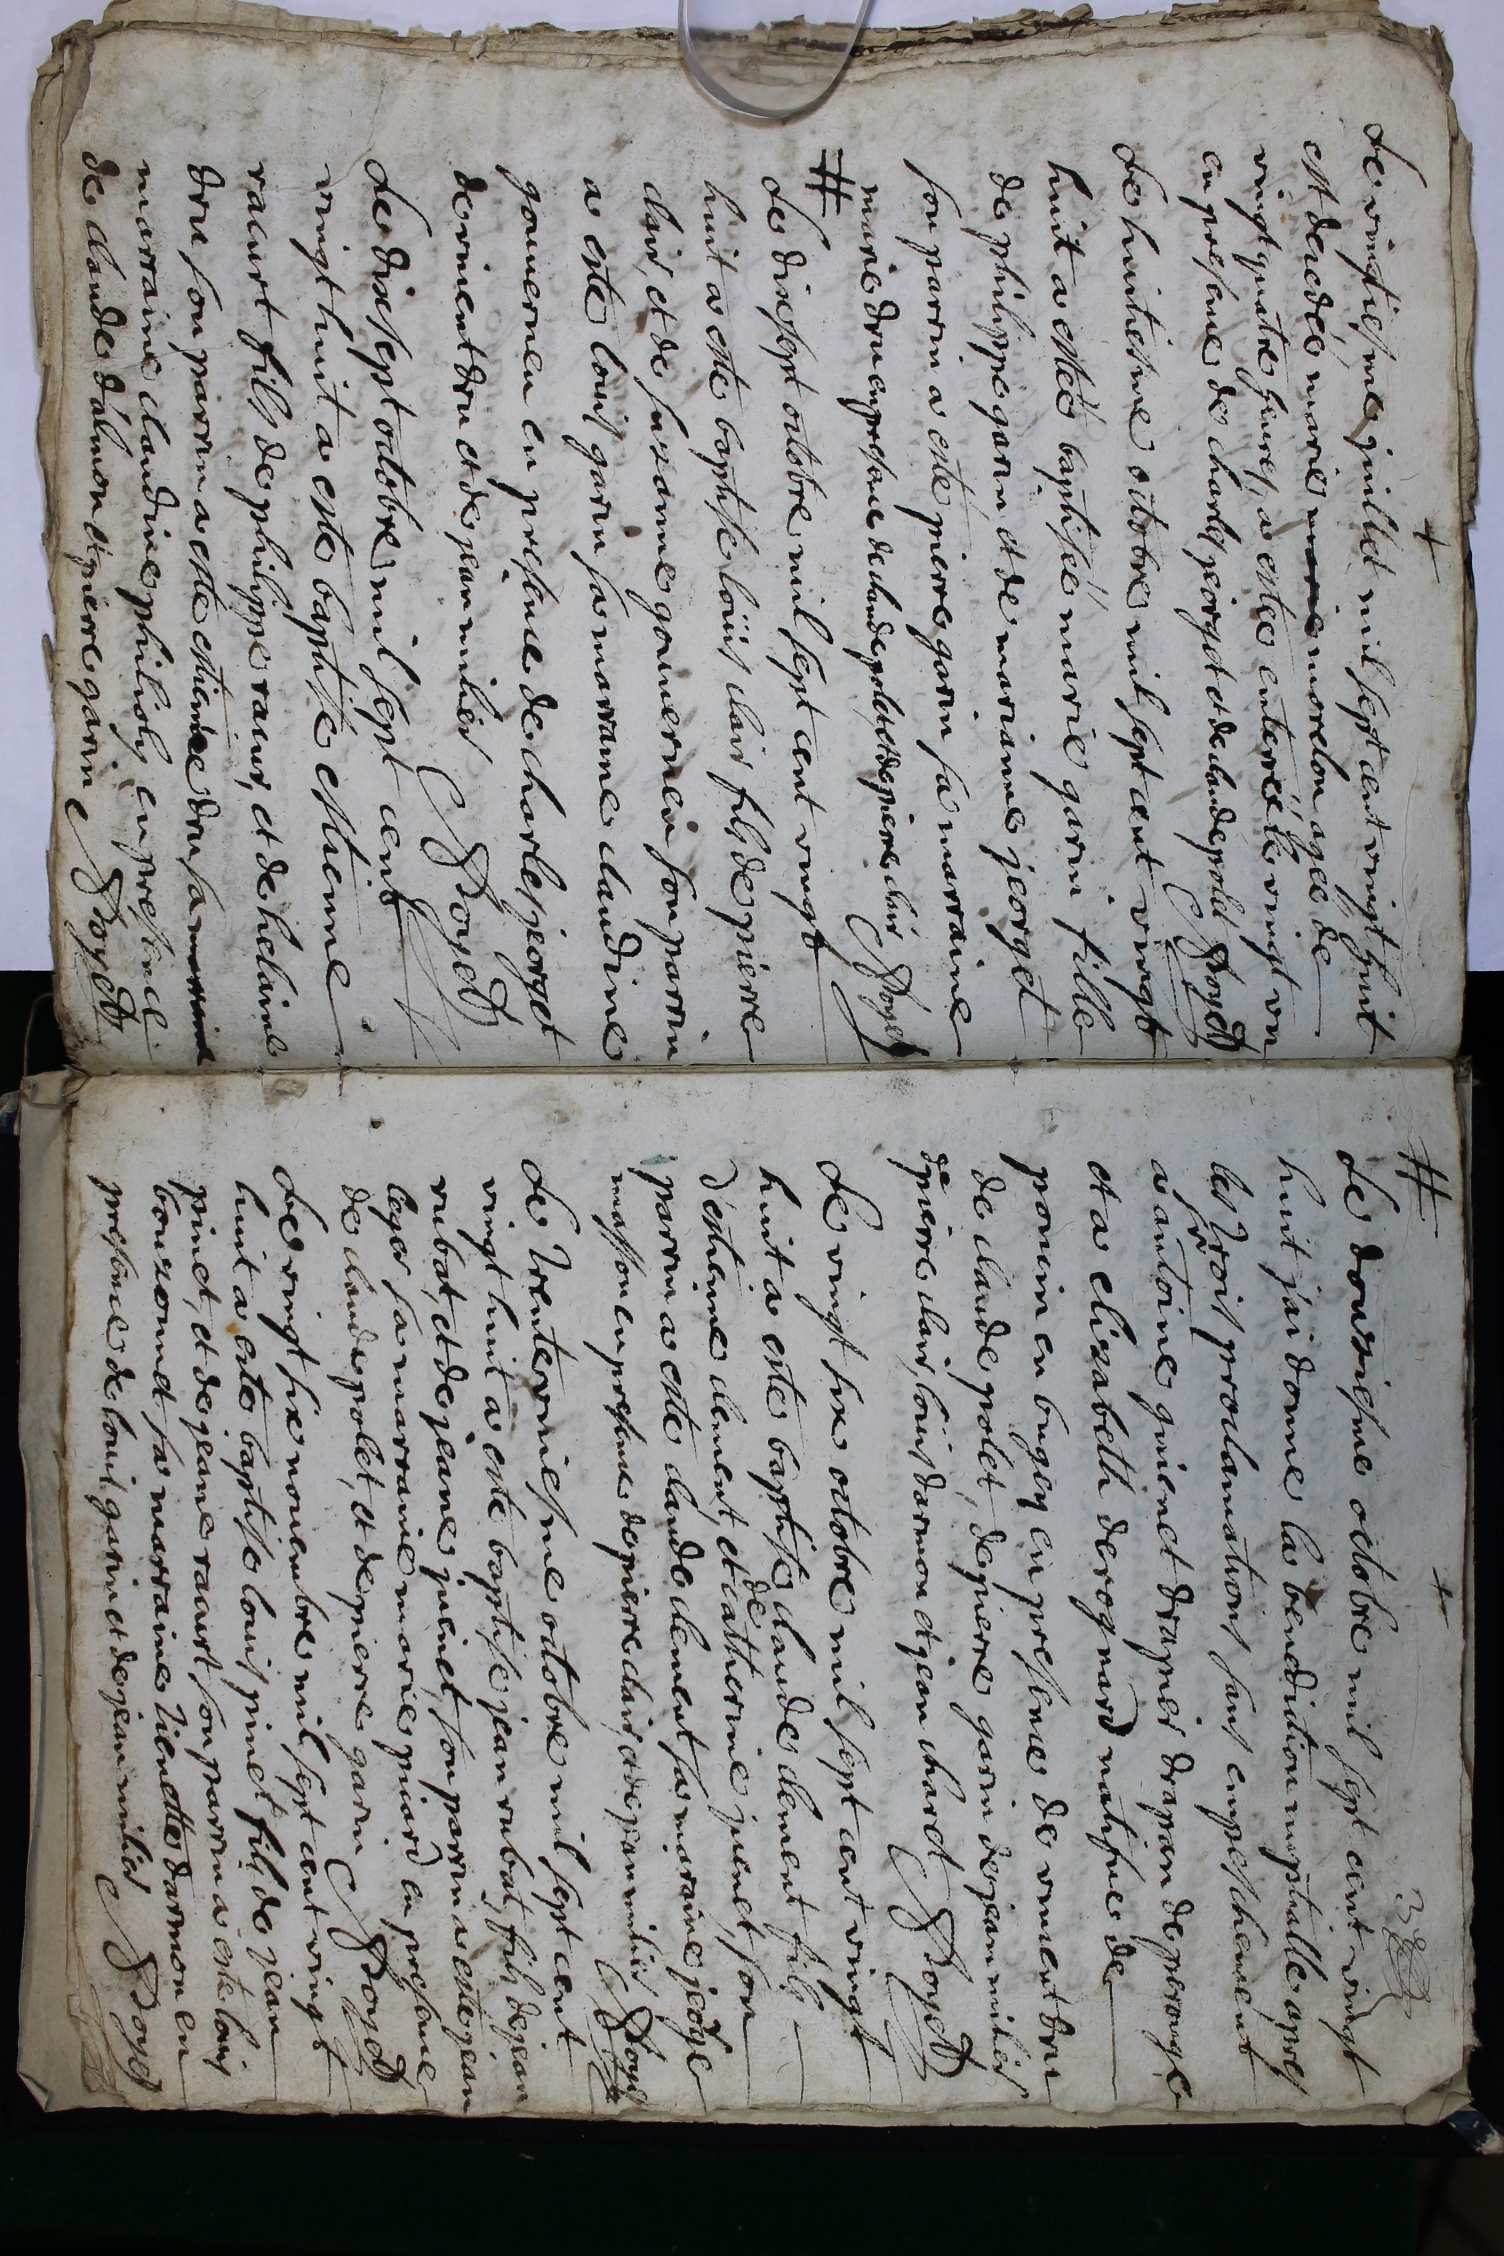 +
Le vingtiesme juillet mil sept cent vingt huit
est decedée marie marie morelon agée de
vingt quatre heures, a estée enterrée le vingt un
en presence de charles jeorget et de claude polet Doyet
Le huitiesme octobre mil sept cent vingt
huit a estée baptisée marie garin fille
de philippe garin, et de marianne jeorget
son parrin a este pierre garin sa marraine
marie dru en presence de claude polet, et de pierre clair Doyet
#
Le dixsept octobre mil sept cent vingt
huit a este baptise loüis clair fils de pierre
clair, et de suzanne gouvernen son parrin
a este louis garin sa marrane claudine
gouvernen en presence de charles jeorget
de vincent dru et de jean milier Doyet
Le dixsept octobre mil sept cent
vingt huit a este baptisé estienne
racurt fils de philippe racur, et de helaine
dru son parrin a este estienne dru sa marraine
marraine claudine philioly en presence
de claude dalmon et pierre garin Doyet
#
+
Le douziesme octobre mil sept cent vingt
huit j'ai donne la benediction nuptialle apres
les trois proclamations sans empeschement
a antoine guinet drapier drapan de perouge
et a elizabeth derognard natifve de
poncin en bugey en presence de vincent dru
de claude polet, de pierre garin de jean milier
de pierre clair, loüis darmon et jean charet Doyet
Le vingt six octobre mil sept cent vingt
huit a este baptise claude clement fils
d'estienne clement, et de catherine juenet, son
parrin a este claude clement sa maraine jeorge
masson en presence de pierre clair, et de jean milier Doyet
Le trente uniesme octobre mil sept cent
vingt huit a este baptise jean rubat, fils de jean
rubat, et de jeane juenet, son parrin a este jean
legar sa marraine marie priard en presence
de claude polet, et de pierre garin Doyet
Le vingt six novembre mil sept cent vingt
huit a este baptise louis pinet fils de jean
pinet, et de jeane racurt son parrin a este louis
bouzonnet sa marraine tienette darmon en
presence de louis garin et de jean milier Doyet